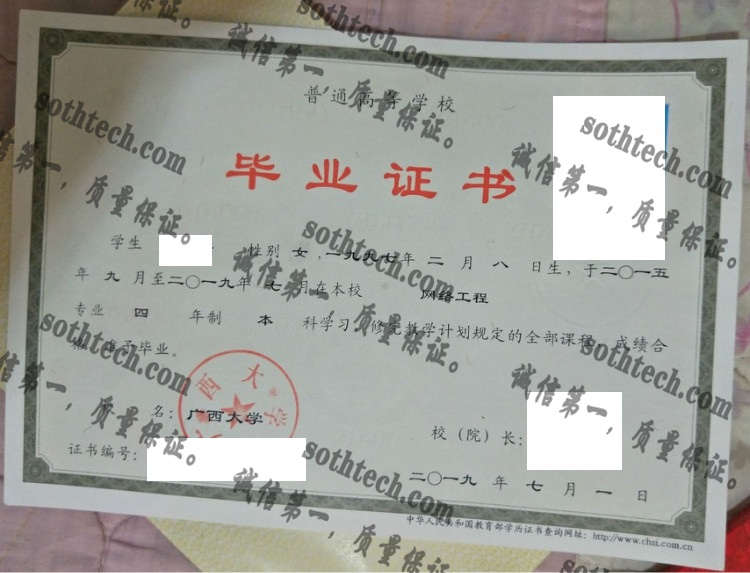 普通高等学校
毕业证书
学生 性别 女,一九九七年 二 月 八 日生,于二〇一五
年 九 月至二〇一九年 七 月在本校 网络工程
专业 四 年制 本 科学习,修完教学计划规定的全部课程,成绩合
准予毕业。
名:广西大学
校(院)长:
证书编号:
二〇一九 年 七 月 一 日
中华人民共和国教育部学历证书查询网址:http://www.chsi.com.cn
西大学
sothtech.com
诚信第一,质量保证。
sothtech.com
诚信第一,质量保证。
sothtech.com
诚信第一,质量保证。
sothtech.com
诚信第一,质量保证。
sothtech.com
诚信第一,质量保证。
sothtech.com
诚信第一,质量保证。
sothtech.com
诚信第一,质量保证。